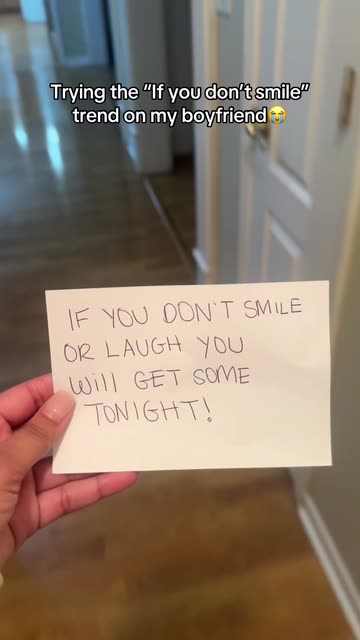 Trying the “If you don’t smile”
trend on my boyfriend😭
IF YOU DON'T SMILE
OR LAUGH YOU
Will GET SOME
TONIGHT!